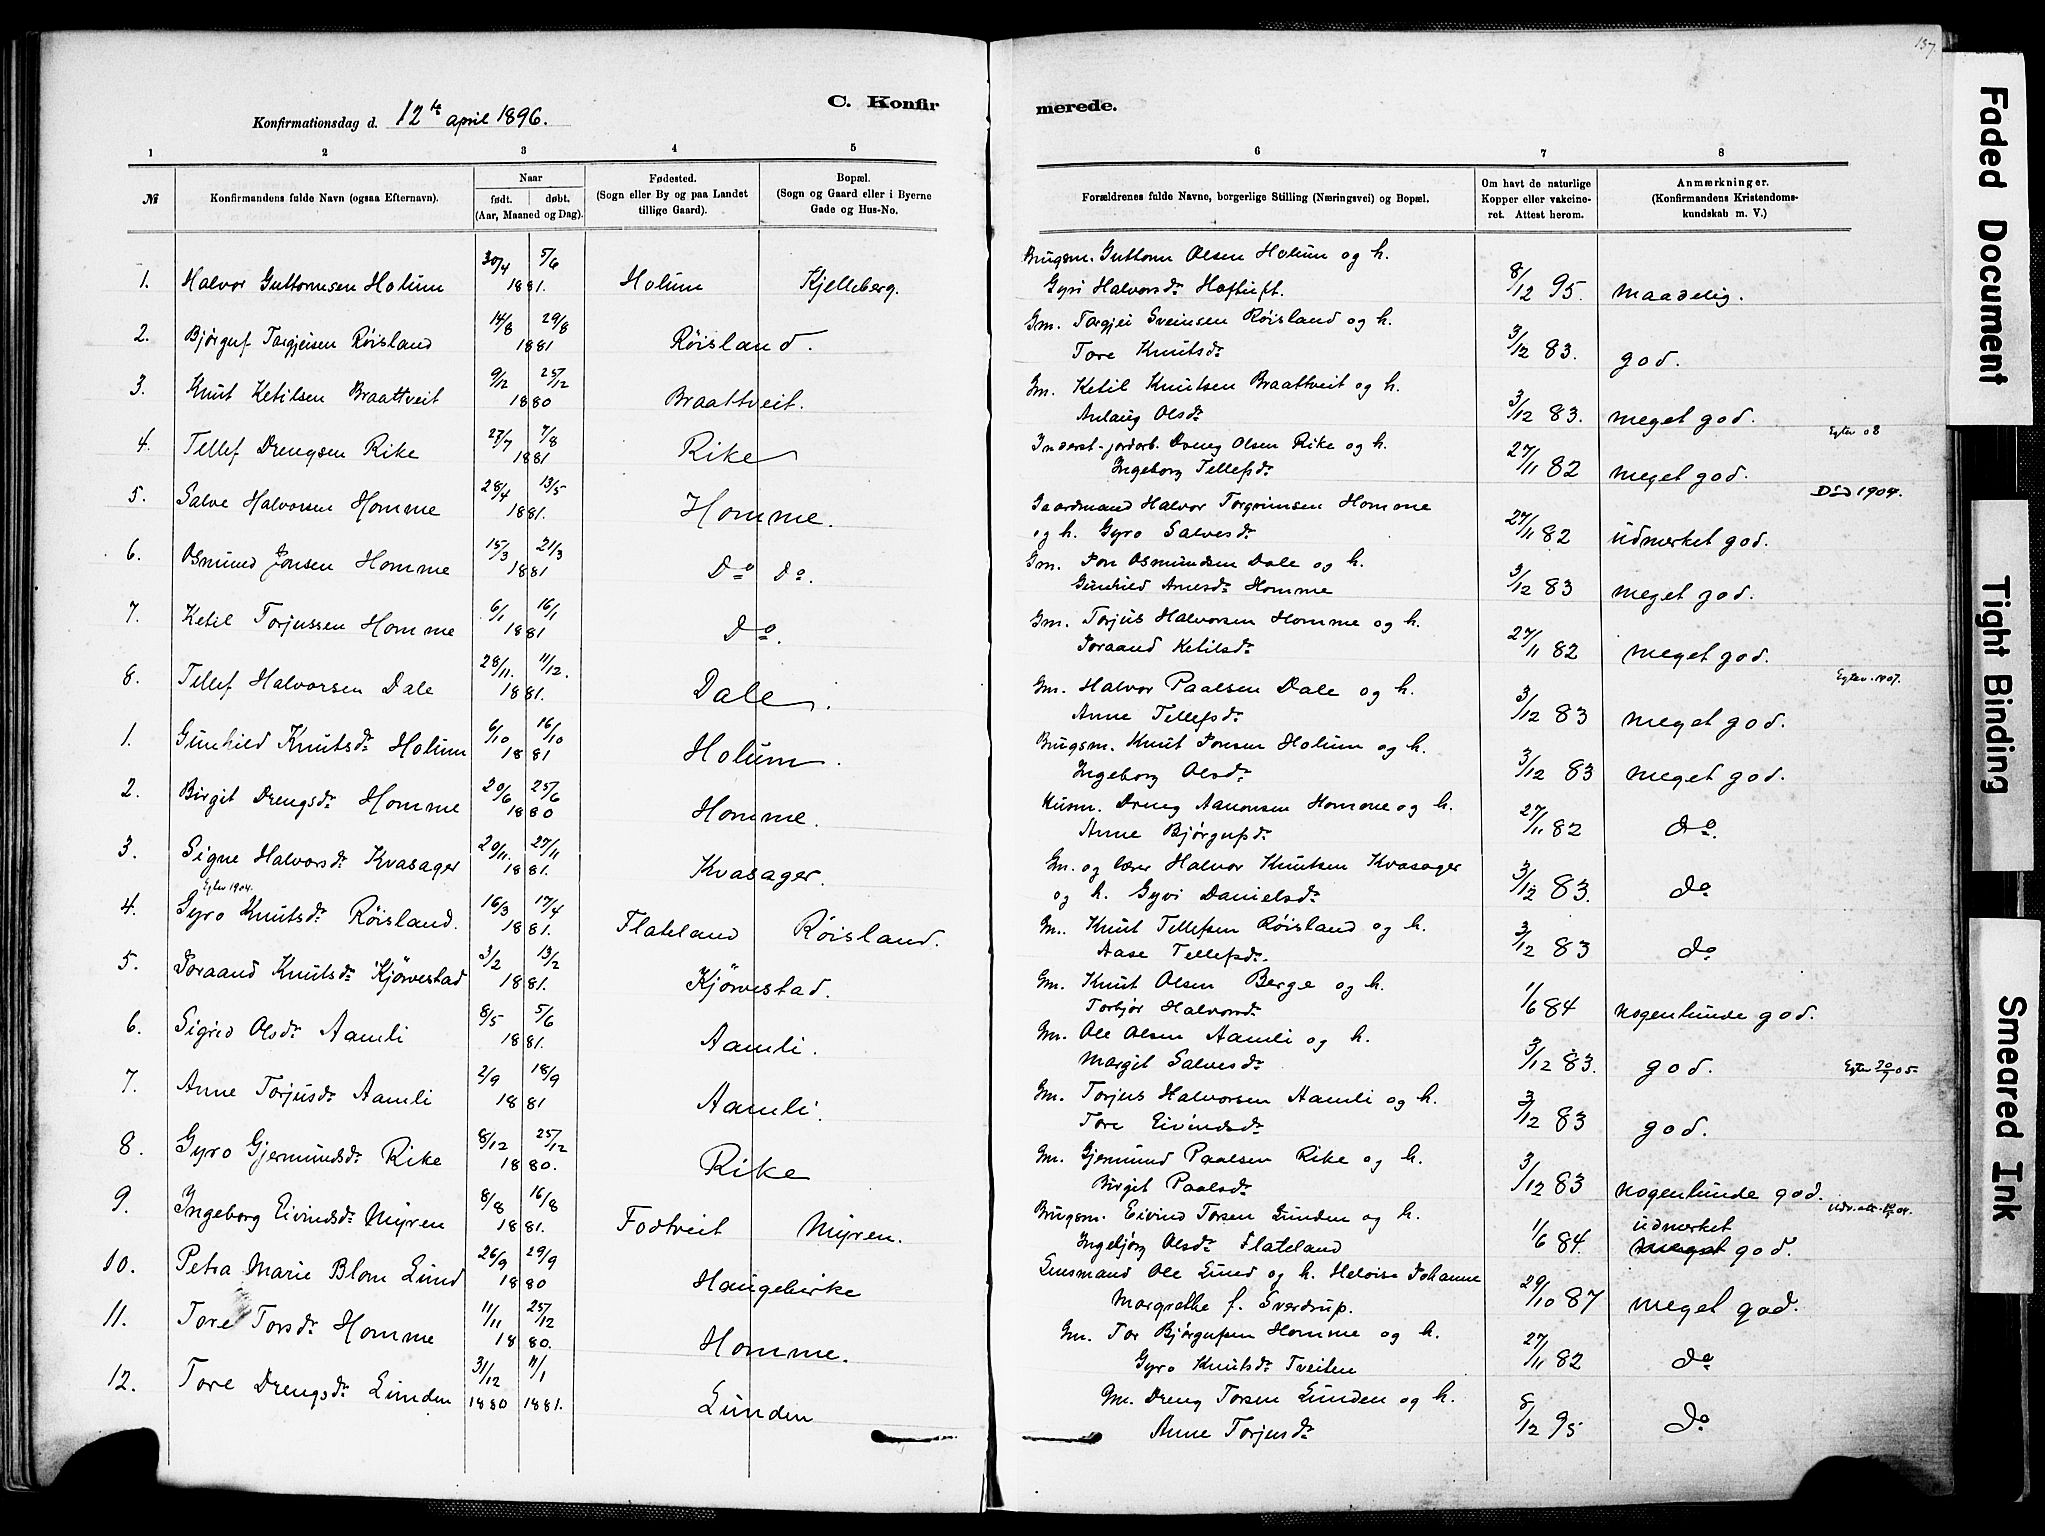 137.
C. Konfirmerede.
Konfirmationsdag d. 12te april 1896.
1 2 3 4 5 6 7 8
№ Konfirmandens fulde Navn (ogsaa Efternavn). Naar født. døbt. (Aar, Maaned og Dag). Fødested. (Sogn eller By og paa Landet tillige Gaard). Bopæl. (Sogn og Gaard eller i Byerne Gade og Hus-No. Forældrenes fulde Navne, borgerlige Stilling (Næringsvei) og Bopæl. Om havt de naturlige Kopper eller vakcineret. Attest herom. Anmærkninger. (Konfirmandens Kristendomskundskab m. V.)
1. Halvor Guttormsen Holum 30/4 5/6 1881. Holum Kjelleberg. Brugsm. Guttorm Olsen Holum og h.
Gyri Halvorsdr Haftuft. 8/12 95. maadelig.
2. Bjørguf Torgjeisen Røisland 14/8 29/8 1881 Røisland. Gm. Torgjei Sveinsen Røisland og h.
Tore Knutsdr 3/12 83. god.
3. Knut Ketilsen Braattveit 9/12 25/12 1880 Braattveit. Gm. Ketil Knutsen Braattveit og h.
Anlaug Olsdr 3/12 83. meget god.
4. Tellef Drengsen Rike 27/7 7/8 1881 Rike Inderst-jordarb. Dreng Olsen Rike og h.
Ingeborg Tellefsdr 27/11 82 meget god. Egtev 08
5. Salve Halvorsen Homme 28/4 13/5 1881. Homme. Gaardmand Halvor Torgrimsen Homme
og h. Gyro Salvesdr 27/11 82 udmerket god. Død 1904.
6. Osmund Jonsen Homme 15/3 21/3 1881 Do Do. Gm. Jon Osmundsen Dale og h.
Gunhild Arnesdr Homme 3/12 83 meget god.
7. Ketil Torjussen Homme 6/1 16/1 1881 Do. Gm. Torjus Halvorsen Homme og h.
Joraand Ketilsdr 27/11 82 meget god.
8. Tellef Halvorsen Dale 28/11. 11/12. 1881. Dale. Gm. Halvor Paalsen Dale og h.
Anne Tellefsdr 3/12 83 meget god. Egtev. 1907.
1. Gunhild Knutsdr Holum 6/10 16/10 1881 Holum. Brugsm. Knut Jonsen Holum og h.
Ingeborg Olsdr 3/12 83 meget god.
2. Birgit Drengsdr Homme 20/6 25/6 1880 Homme. Husm. Dreng Aanonsen Homme og h.
Anne Bjørgufsdr 27/11 82 do.
3. Signe Halvorsdr Kvasager 20/11. 27/11 1881. Kvasager. Gm. og lærer Halvor Knutsen Kvasager
og h. Gyvi Danielsdr 3/12 83. do
Egtev 1904.
4. Gyro Knutsdr Røisland. 16/3 17/4 1881. Flateland Røisland. Gm. Knut Tellefsen Røisland og h.
Aase Tellefsdr. 3/12 83 do
5. Joraand Knutsdr Kjørvestad 3/2 13/2 1881. Kjørvestad. Gm. Knut Olsen Berge og h.
Torbjør Halvorsdr 1/6 84 nogenlunde god.
6. Sigrid Olsdr Aamli 8/5 5/6 1881. Aamli. Gm. Ole Olsen Aamli og h.
Margit Salvesdr 3/12 83. god.
7. Anne Torjusdr Aamli 2/9 18/9 1881 Aamli. Gm. Torjus Halvorsen Aamli og h.
Tore Eivindsdr 3/12 83 god.
8. Gyro Gjermundsdr Rike 8/12 25/12 1880. Rike Gm. Gjermund Paalsen Rike og h.
Birgit Paalsdr 3/12 83 nogenlunde god.
9. Ingeborg Eivindsdr Myren 8/8 16/8 1881. Fodtveit Myren. Brugsm. Eivind Torsen Lunden og h.
Ingebjørg Olsdr Flateland 1/6 84. udmerket
meget god.
10. Petra Marie Blom Lund 26/9 29/9 1880 Haugebirke Lensmand Ole Lund og h. Heloise Johanne
Margrethe f. Sverdrup. 29/10 87 meget god.
11. Tore Torsdr Homme 11/11 25/12 1880. Homme. Gm. Tor Bjørgufsen Homme og h.
Gyro Knutsdr Tveiten 27/11 82 do
12. Tore Drengsdr Lunden 31/12 1880 1881. Lunden Gm. Dreng Torsen Lunden og h.
Anne Torjusdr 8/12 95 do
Faded Document
Tight Binding
Smeared Ink